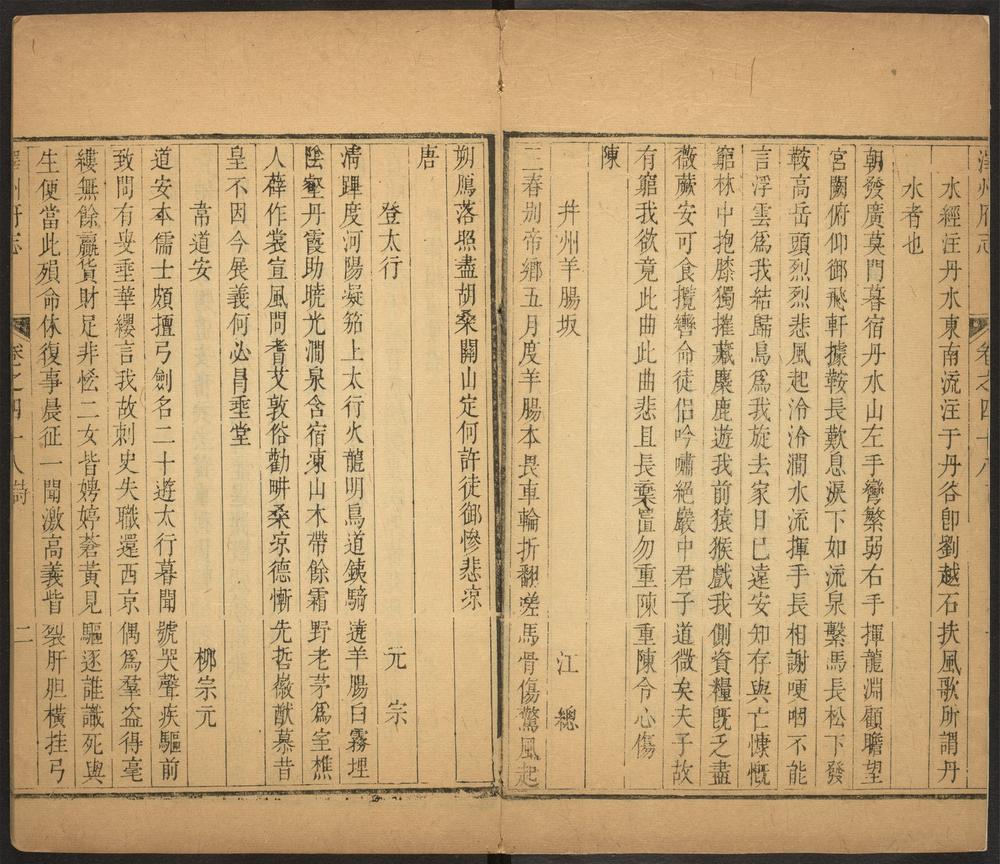 澤州府志 卷之四十八
水經注丹水東南流注于丹谷卽劉越石扶風歌所謂丹
水者也
朝發廣莫門暮宿丹水山左手彎繁弱右手揮龍淵顧瞻望
宮闕俯仰御飛軒據鞍長歎息淚下如流泉繫馬長松下發
鞍高岳頭烈烈悲風起泠泠澗水流揮手長相謝哽咽不能
言浮雲爲我結歸鳥爲我旋去家日已遠安知存與亡慷慨
窮林中抱膝獨摧藏麋鹿遊我前猿猴戲我側資糧旣乏盡
薇蕨安可食攬轡命徒侶吟嘯絕巖中君子道微矣夫子故
有窮我欲竟此曲此曲悲且長棄置勿重陳重陳令心傷
陳
幷州羊腸坂 江總
三春別帝鄉五月度羊腸本畏車輪折翻嗟馬骨傷驚風起
朔鴈落照盡胡桑關山定何許徒御慘悲凉
唐
登太行 元宗
淸蹕度河陽凝笳上太行火龍明鳥道鐵騎遶羊腸白霧埋
陰壑丹霞助曉光澗泉含宿凍山木帶餘霜野老茅爲室樵
人薜作裳宣風問耆艾敦俗勸畊桑凉德慚先哲徽猷慕昔
皇不因今展義何必冐垂堂
韋道安 柳宗元
道安本儒士頗擅弓劍名二十遊太行暮聞號哭聲疾驅前
致問有叟垂華纓言我故刺史失職還西京偶爲羣盜得毫
縷無餘贏貨財足非恡二女皆娉婷蒼黃見驅逐誰識死與
生便當此殞命休復事晨征一聞激高義眥裂肝胆橫挂弓
澤州府志 卷之四十八詩 二